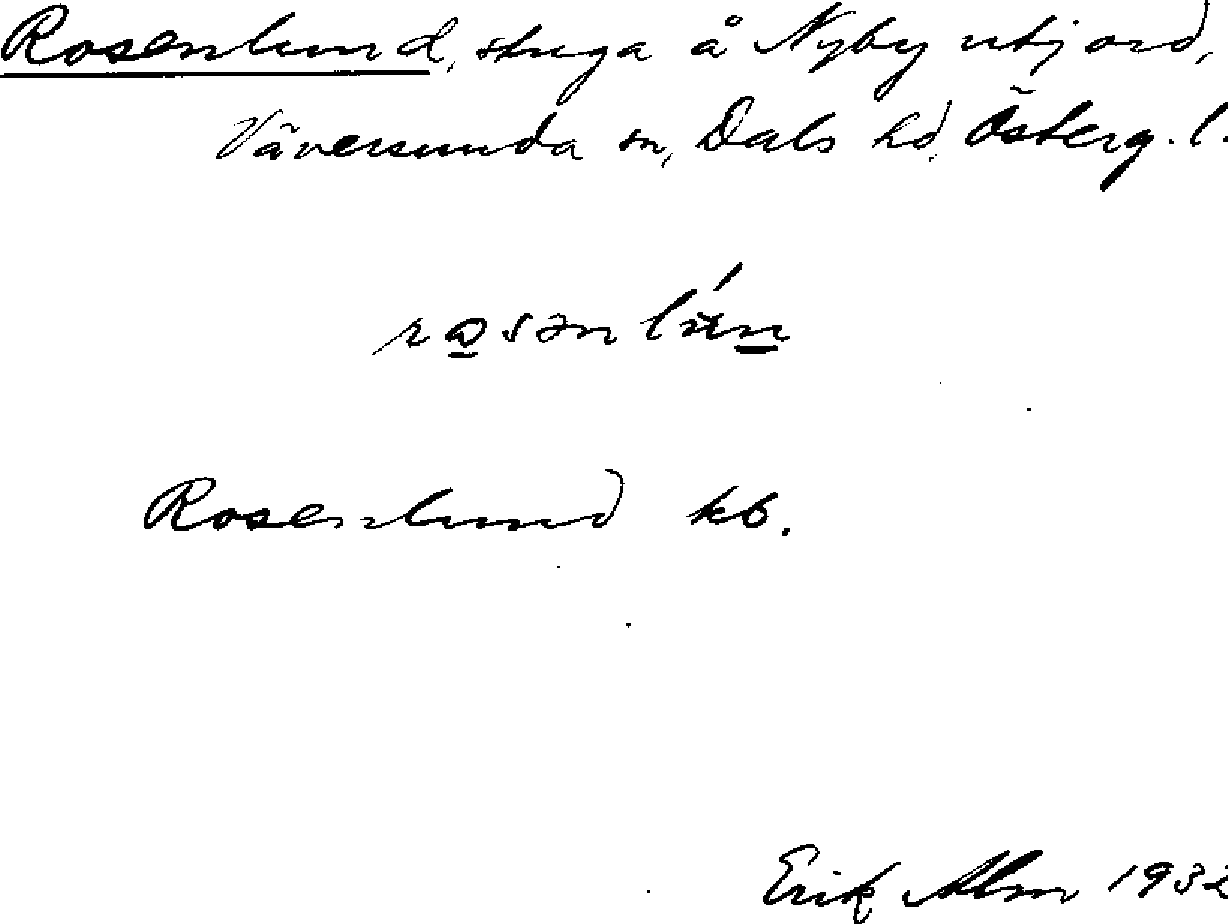 Rosenlund, stuga å Nyby utjord,
Väversunda sn, Dals hd, Österg. l.
rosənlún
Rosenlund kb.
Erik Alm 1932